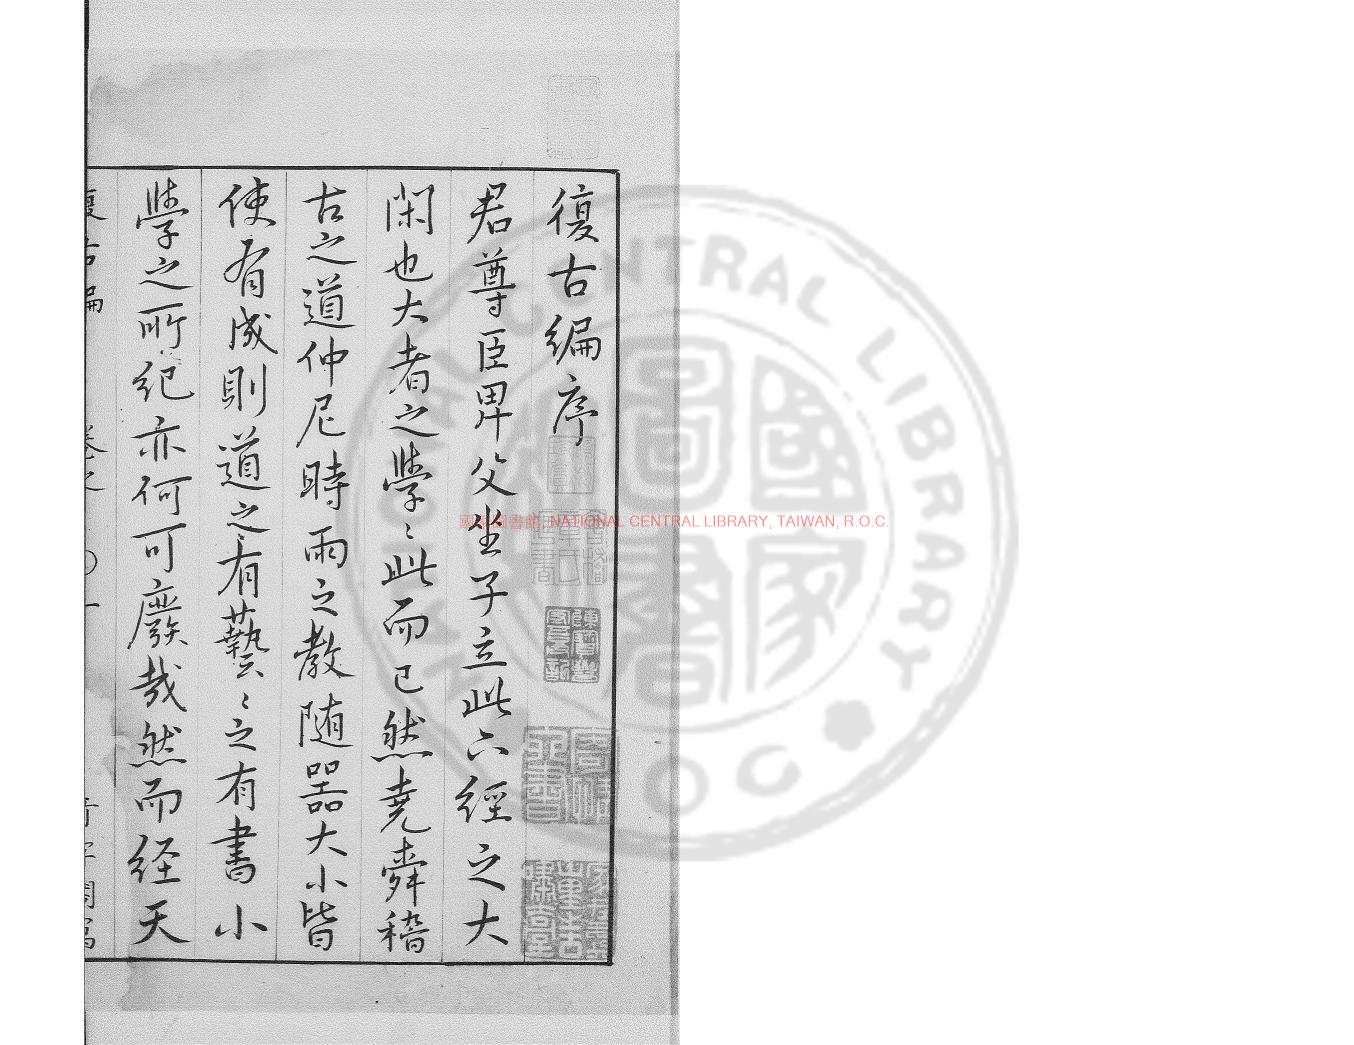 復古編序
君尊臣畀父坐子立此六經之大
閑也大者之學〻此而已然堯舜稽
古之道仲尼時雨之教随器大小皆
使有成則道之〻有藝〻之有書小
學之所紀亦何可廢哉然而経天
復古編
卷之
〇一
國家圖書館, NATIONAL CENTRAL LIBRARY, TAIWAN, R.O.C.
NATIONAL CENTRAL LIBRARY